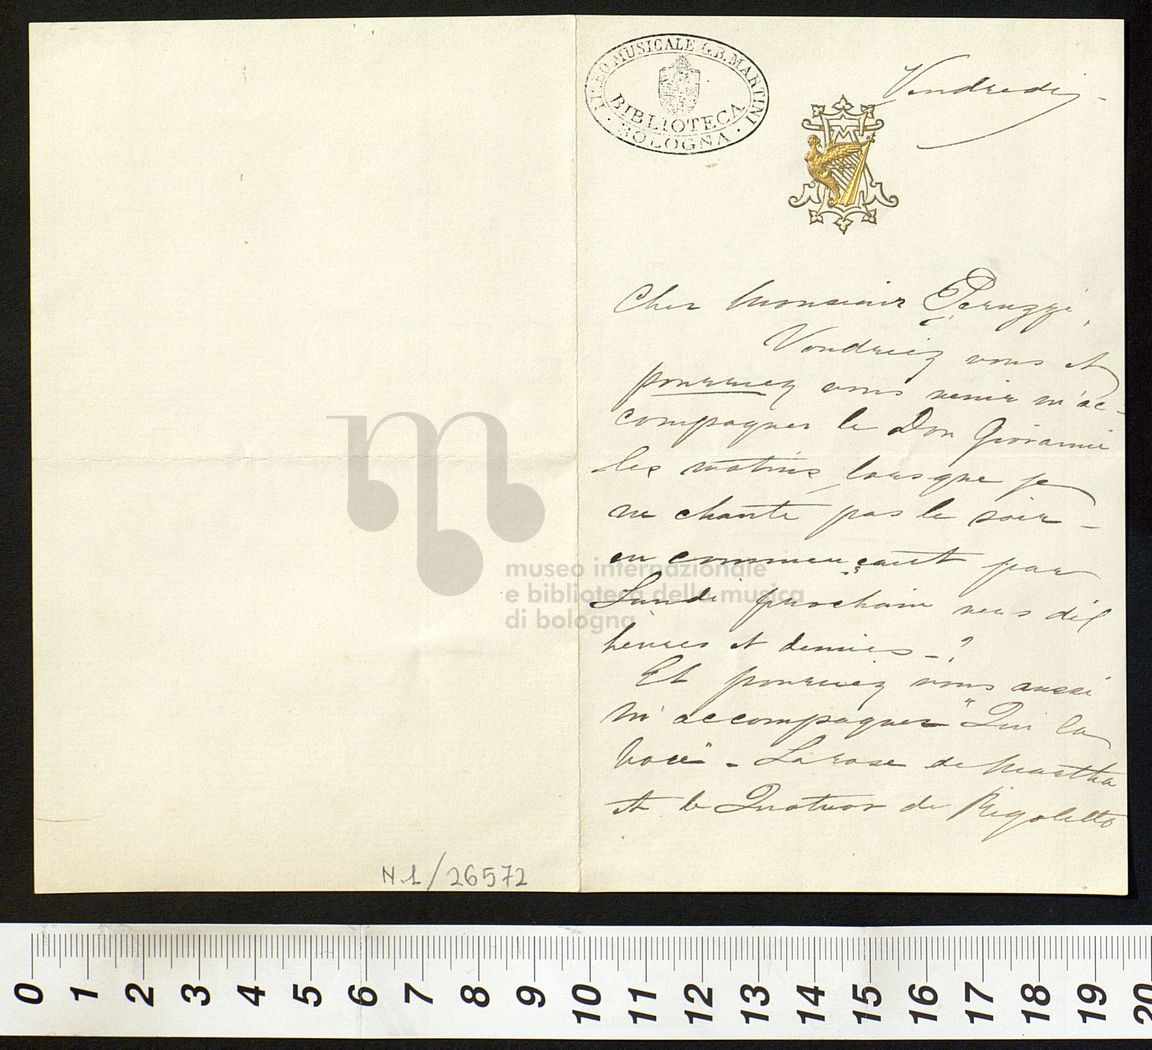 LICEO MUSICALE G.B. MARTINI
BIBLIOTECA
BOLOGNA
Vendredi -
Cher Monsieur Peruzzi,
Voudriez vous et
pourriez vous venir m'ac-
compagner le Don Giovanni
les matins, lorsque je
ne chante pas le soir -
en commençant par
Lundi prochain vers dix
heures et demies - ?
Et pourriez vous aussi
m'accompagner "Qui la
voce" - La rose de Martha
et le Quatuor de Rigoletto
museo internazionale
e biblioteca della musica
di bologna
N.1/26572
0 1 2 3 4 5 6 7 8 9 10 11 12 13 14 15 16 17 18 19 20